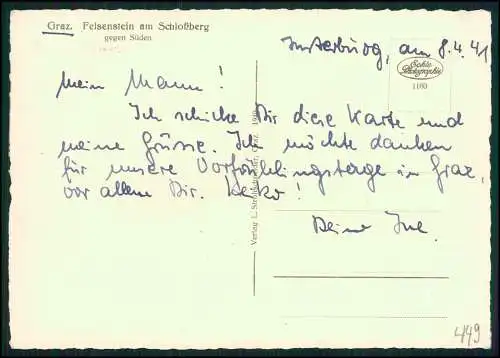 Graz. Felsenstein am Schloßberg
gegen Süden
Insterburg, am 8.4.41
Echte
Photographie
1160
Mein Mann!
Ich schicke Dir diese Karte und
meine Grüsse. Ich möchte danken
für unsere Vorfrühlingstage in Graz,
vor allem Dir.
Deine Ine.
Verlag L. Strohschneider, Graz.
449